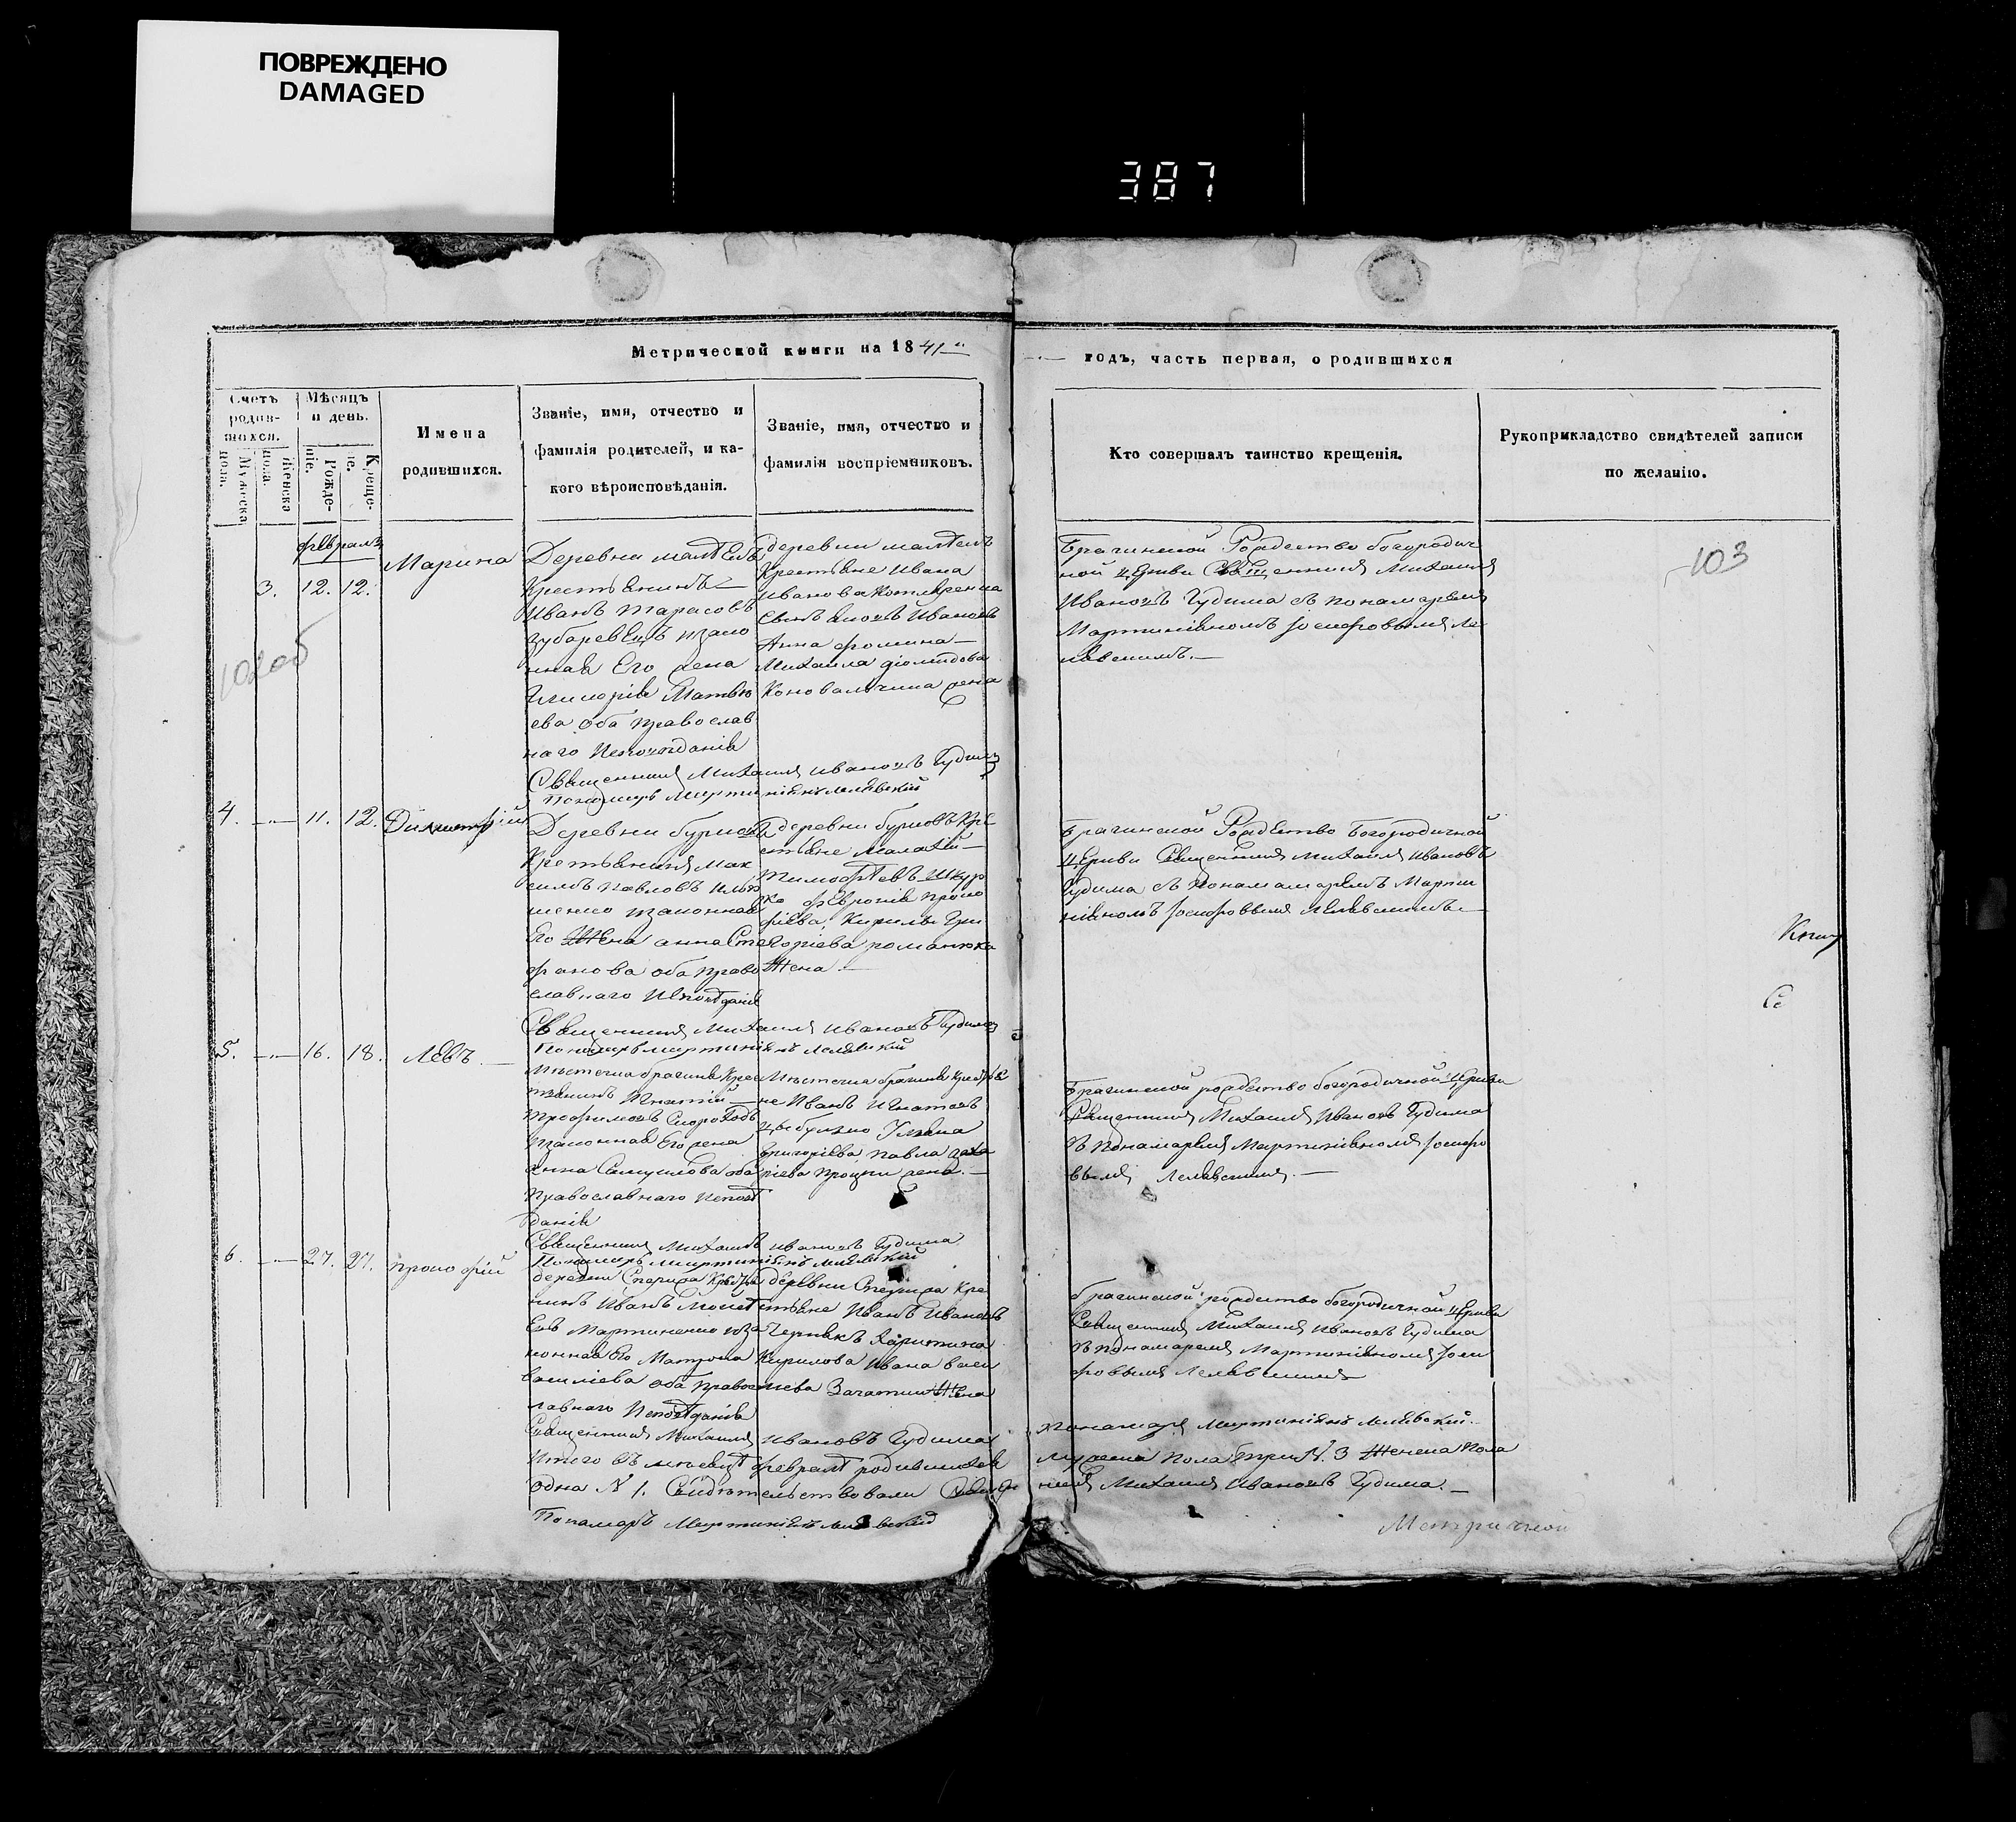 ПОВРЕЖДЕНО
DAMAGED
387
Метрической книги на 1841
годъ, часть первая, о родившихся
Счетъ родившихся.
Мужеска пола.
Женска пола.
Мѣсяцъ и день.
Рожденіе.
Крещеніе.
Имена
родившихся.
Званіе, имя, отчество и
фамилія родителей, и ка-
кого вѣроисповѣданія.
Званіе, имя, отчество и
фамиліи воспріемниковъ.
Кто совершалъ таинство крещенія.
Рукоприкладство свидѣтелей записи
по желанію.
103
102об
февраль
3. 12. 12.
Марина
Деревни
Крестьянинъ
Иванъ Тарасовъ
зако
нная Его жена
Матвѣ
ева оба православ
наго Исповѣданія
деревни
Крестьяне Ивана
Иванова
сынъ Иванъ
Анна Фомина
Михаила
Коновальчика жена
Брагинской Рождество богородич
ной церкви Священникъ Михаилъ
Ивановъ Гудима съ понамаремъ
Мартиніаномъ Іосифовымъ Ле
лявскимъ.
Священникъ Михаилъ Ивановъ Гудима
Понамарь Мартиніянъ Лелявскій
4. 11. 12. Димитрій
Деревни
Крестьянинъ Мак
симъ Павловъ
законная
Его Жена Анна Сте
фанова оба право
славнаго Исповѣданія
деревни Кре
стьяне Малахій
Тимофѣевъ Шкур
ко февронія проко
фіева, Кирилы Гри
горіева романюка
Жена
Брагинской Рождество Богородичной
Церкви Священникъ Михаилъ Ивановъ
Гудима съ понамаремъ Марти
ніяномъ Іосифовымъ Лелявскимъ
Священникъ Михаилъ Ивановъ Гудима
Понамарь Мартиніянъ Лелявскій
5. 16. 18. Левъ
Мѣстечка брагина Крес
тьянинъ Игнатій
Трофимовъ Скороходъ
законная Его жена
Анна Самуилова оба
Православнаго Исповѣ
данія
Мѣстечка брагина Крестья
не Иванъ Игнатовъ
Цыбулько Ульяна
григоріева павла заха
ріева Процки жена.
Брагинской рождество богородичной Церкви
Священникъ Михаилъ Ивановъ Гудима
съ понамаремъ Мартиніяномъ Іосифо
вымъ Лелявскимъ.
Священникъ Михаилъ Ивановъ Гудима
Понамарь Мартиніянъ Лелявскій
6. 27. 27. прокофій
деревни Сперижа Крестья
нинъ Иванъ Моисѣ
евъ Мартиненко зако
нная Его Матрона
василіева оба правос
лавнаго Исповѣданія
деревни Сперижа Кре
стьяне Иванъ Ивановъ
Чернякъ Харитина
Кирилова Ивана васи
ліева Жена
брагинской рождество богородичной церкви
Священникъ Михаилъ Ивановъ Гудима
съ понамаремъ Мартиніяномъ Іоси
фовымъ Лелявскимъ
Священникъ Михаилъ Ивановъ Гудима
понамарь Мартиніянъ Лелявскій.
Итого въ мѣсяцѣ февралѣ родившихся
мужеска пола три № 3 Женска Пола
одна № 1. Свидѣтельствовали Священ
никъ Михаилъ Ивановъ Гудима.
Понамарь Мартиніянъ Лелявскій
Метричной